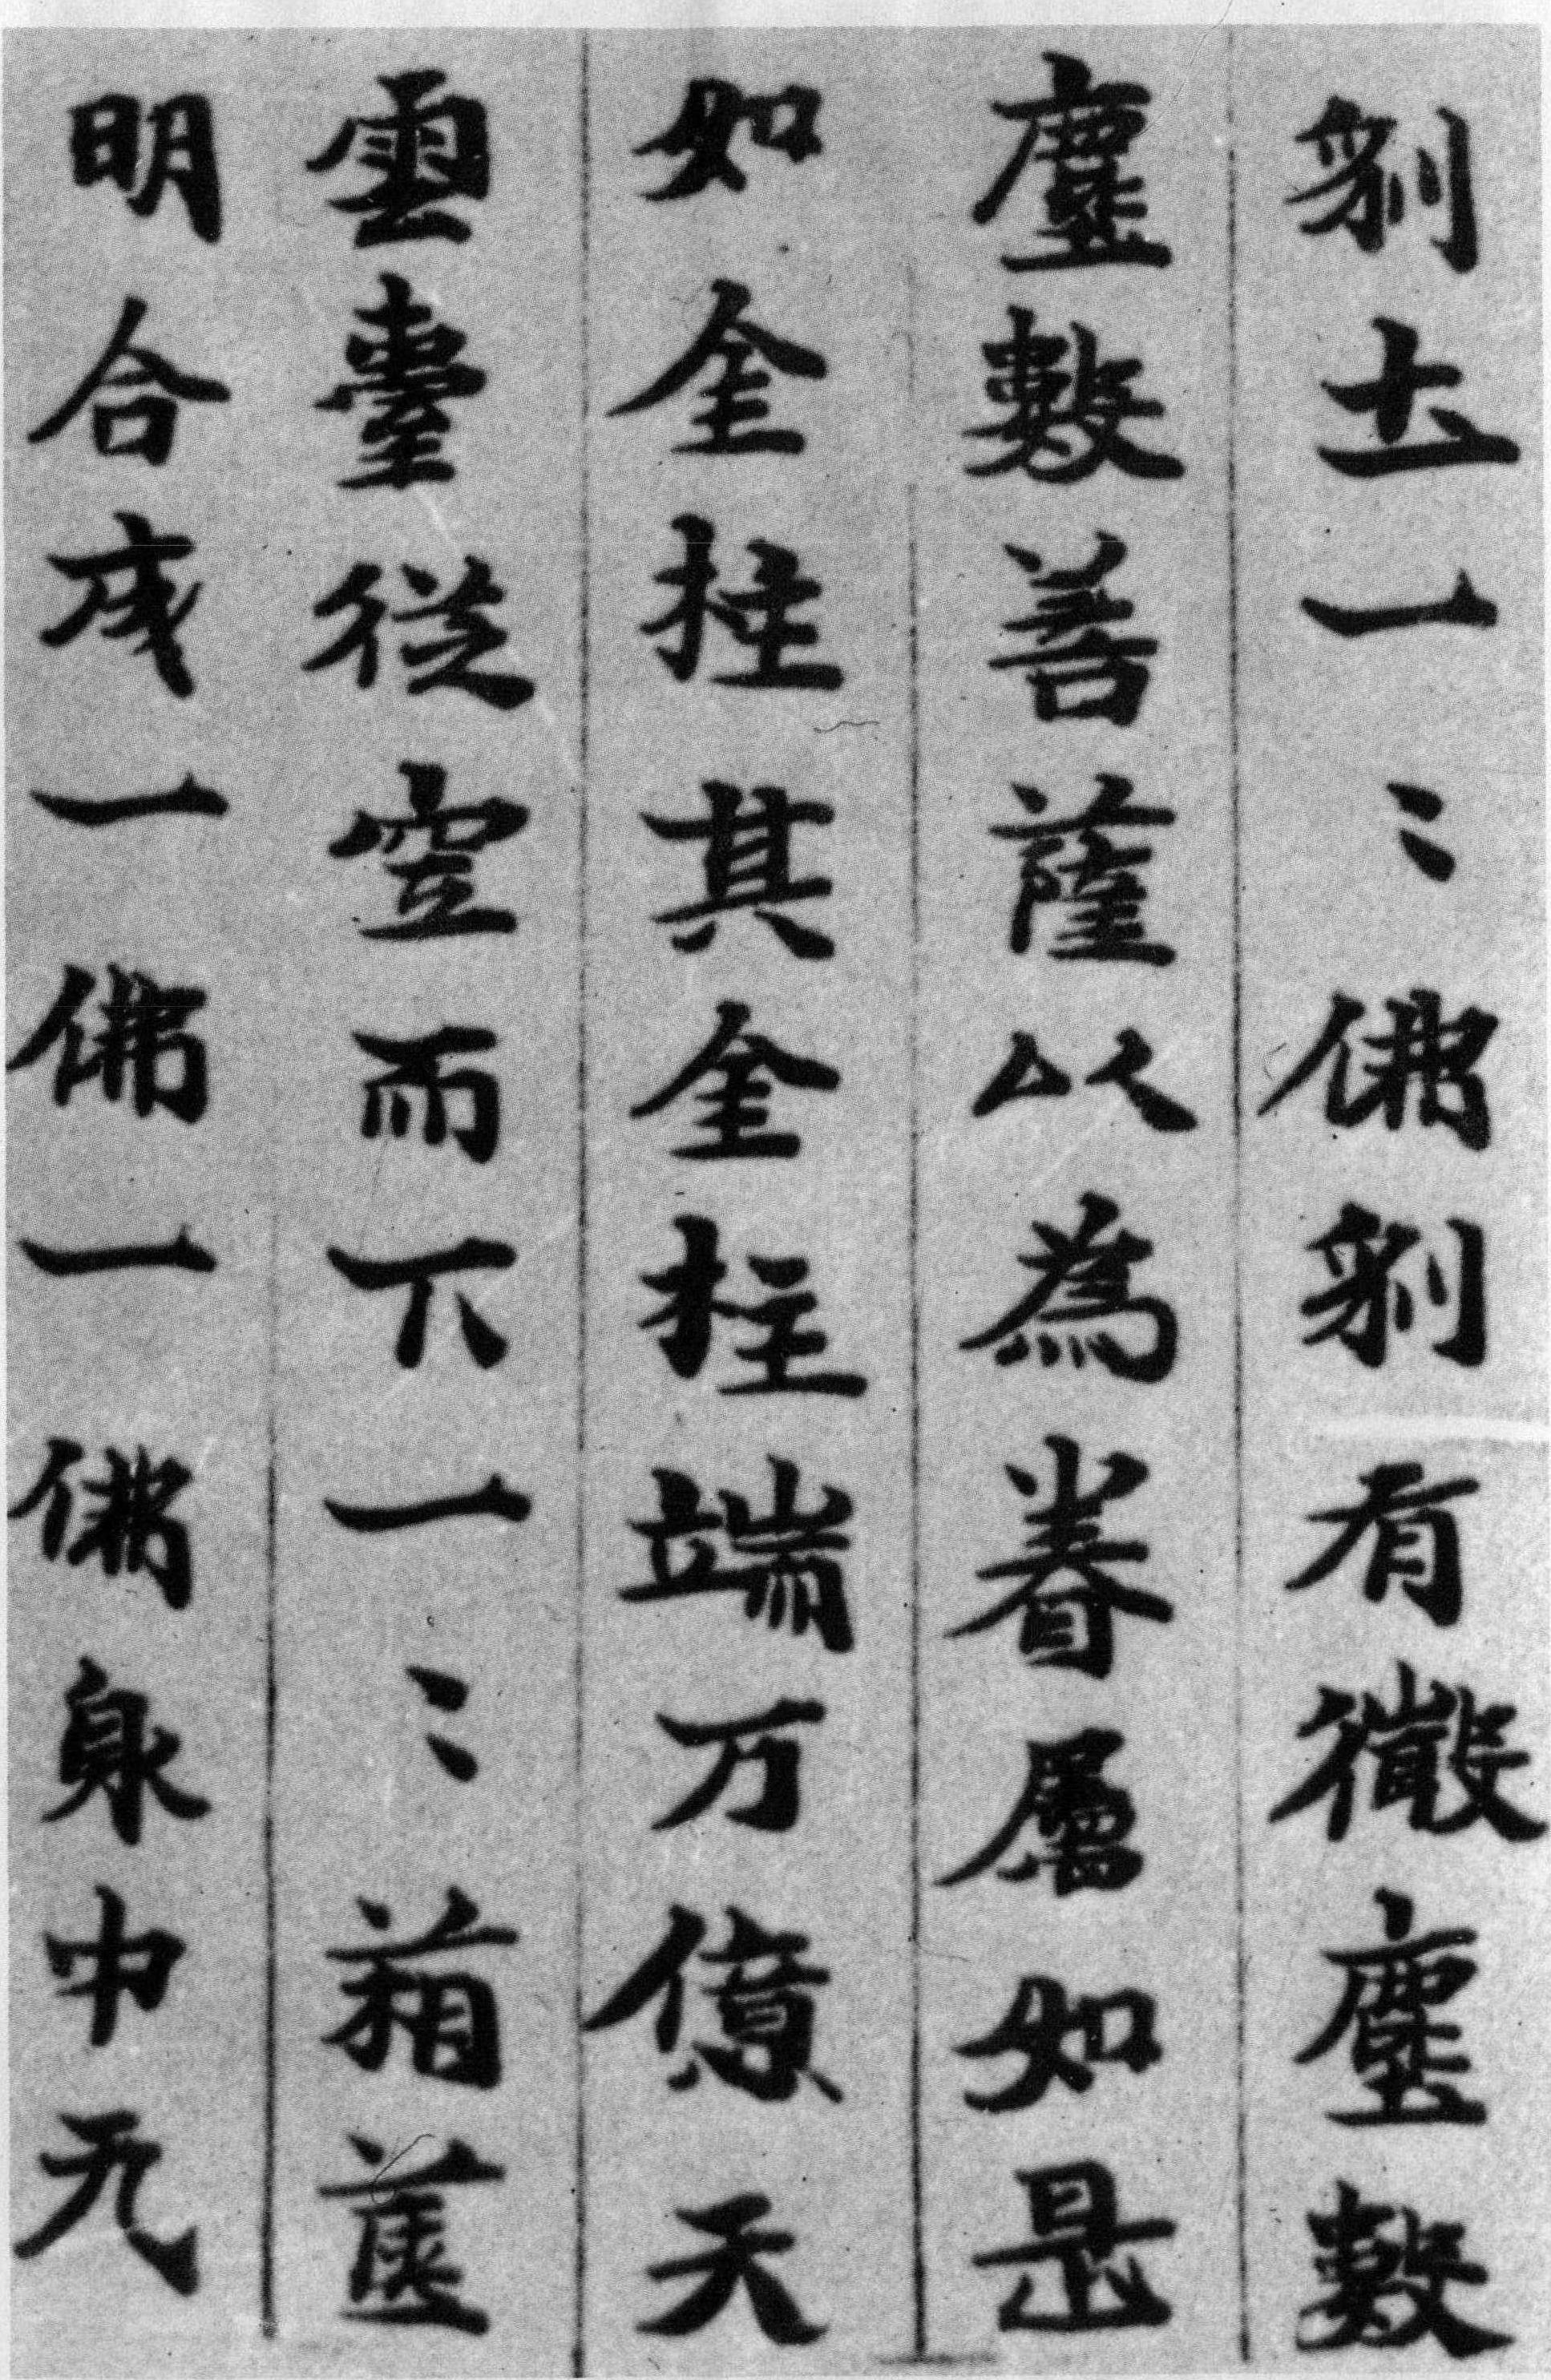 刹土一〻佛刹有微塵數
塵數菩薩以為眷屬如是
如金柱其金柱端万億天
雲臺從空而下一〻葙
明合成一佛一佛身中无